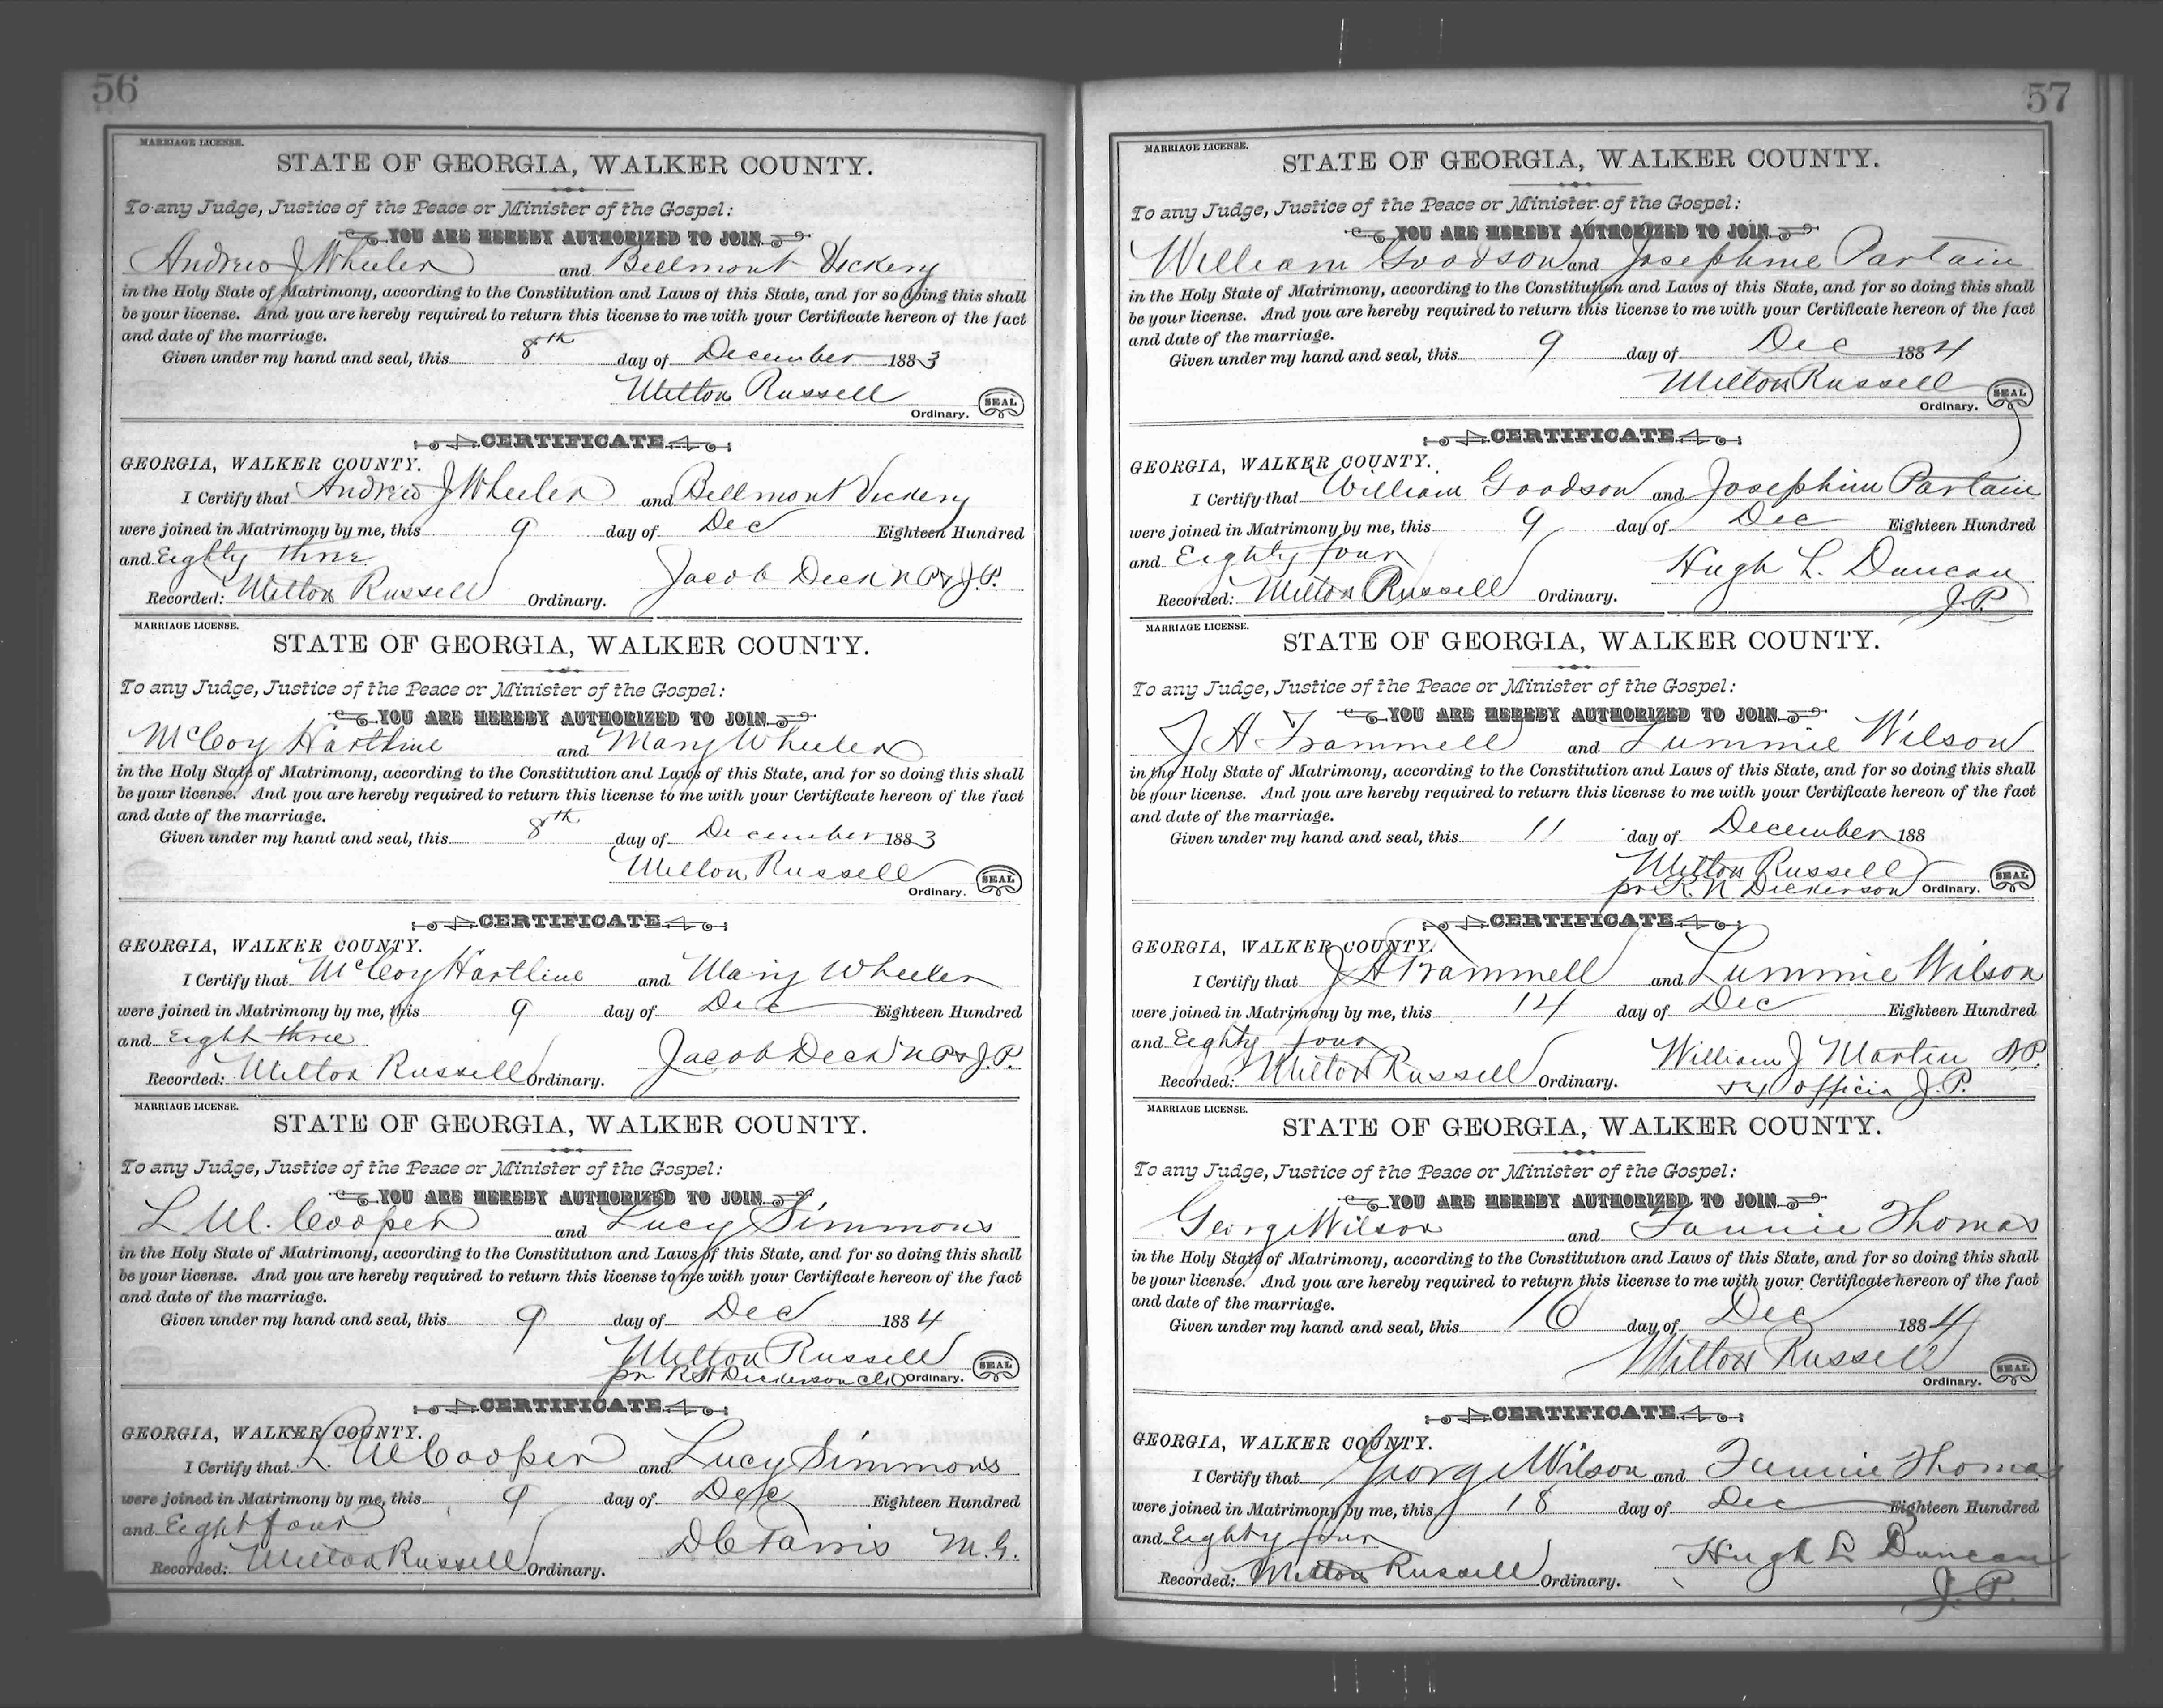 56
MARRIAGE LICENSE.
STATE OF GEORGIA, WALKER COUNTY.
To any Judge, Justice of the Peace or Minister of the Gospel:
YOU ARE HEREBY AUTHORIZED TO JOIN
Andrew J Wheeler and Bellmont Vickery
in the Holy State of Matrimony, according to the Constitution and Laws of this State, and for so doing this shall
be your license. And you are hereby required to return this license to me with your Certificate hereon of the fact
and date of the marriage.
Given under my hand and seal, this 8th day of December 1883
Milton Russell
Ordinary. SEAL
CERTIFICATE
GEORGIA, WALKER COUNTY.
I Certify that Andrew J Wheeler and Bellmont Vickery
were joined in Matrimony by me, this 9 day of Dec Eighteen Hundred
and Eighty three
Recorded: Milton Russell Ordinary. Jacob Deck N P & J.P.
MARRIAGE LICENSE.
STATE OF GEORGIA, WALKER COUNTY.
To any Judge, Justice of the Peace or Minister of the Gospel:
YOU ARE HEREBY AUTHORIZED TO JOIN
McCoy Hartline and Mary Wheeler
in the Holy State of Matrimony, according to the Constitution and Laws of this State, and for so doing this shall
be your license. And you are hereby required to return this license to me with your Certificate hereon of the fact
and date of the marriage.
Given under my hand and seal, this 8th day of December 1883
Milton Russell
Ordinary. SEAL
CERTIFICATE
GEORGIA, WALKER COUNTY.
I Certify that McCoy Hartline and Mary Wheeler
were joined in Matrimony by me, this 9 day of Dec Eighteen Hundred
and Eight three
Recorded: Milton Russell Ordinary. Jacob Deck N P & J.P.
MARRIAGE LICENSE.
STATE OF GEORGIA, WALKER COUNTY.
To any Judge, Justice of the Peace or Minister of the Gospel:
YOU ARE HEREBY AUTHORIZED TO JOIN
L. W. Cooper and Lucy Simmons
in the Holy State of Matrimony, according to the Constitution and Laws of this State, and for so doing this shall
be your license. And you are hereby required to return this license to me with your Certificate hereon of the fact
and date of the marriage.
Given under my hand and seal, this 9 day of Dec 1884
Milton Russell
pr R N Dickerson Clk Ordinary. SEAL
CERTIFICATE
GEORGIA, WALKER COUNTY.
I Certify that L. W Cooper and Lucy Simmons
were joined in Matrimony by me, this 9 day of Dec Eighteen Hundred
and Eight four
Recorded: Milton Russell Ordinary. D C Farris M.G.
57
MARRIAGE LICENSE.
STATE OF GEORGIA, WALKER COUNTY.
To any Judge, Justice of the Peace or Minister of the Gospel:
YOU ARE HEREBY AUTHORIZED TO JOIN
William Goodson and Josephine Partain
in the Holy State of Matrimony, according to the Constitution and Laws of this State, and for so doing this shall
be your license. And you are hereby required to return this license to me with your Certificate hereon of the fact
and date of the marriage.
Given under my hand and seal, this 9 day of Dec 1884
Milton Russell
Ordinary. SEAL
CERTIFICATE
GEORGIA, WALKER COUNTY.
I Certify that William Goodson and Josephine Partain
were joined in Matrimony by me, this 9 day of Dec Eighteen Hundred
and Eighty four Hugh L. Duncan
Recorded: Milton Russell Ordinary. J.P.
MARRIAGE LICENSE.
STATE OF GEORGIA, WALKER COUNTY.
To any Judge, Justice of the Peace or Minister of the Gospel:
YOU ARE HEREBY AUTHORIZED TO JOIN
J A Trammell and Lummie Wilson
in the Holy State of Matrimony, according to the Constitution and Laws of this State, and for so doing this shall
be your license. And you are hereby required to return this license to me with your Certificate hereon of the fact
and date of the marriage.
Given under my hand and seal, this 11 day of December 188
Milton Russell
pr R. N Dickerson Ordinary. SEAL
CERTIFICATE
GEORGIA, WALKER COUNTY.
I Certify that J A Trammell and Lummie Wilson
were joined in Matrimony by me, this 14 day of Dec Eighteen Hundred
and Eighty four William J Martin N.P.
Recorded: Milton Russell Ordinary. & ex officio J.P.
MARRIAGE LICENSE.
STATE OF GEORGIA, WALKER COUNTY.
To any Judge, Justice of the Peace or Minister of the Gospel:
YOU ARE HEREBY AUTHORIZED TO JOIN
George Wilson and Fannie Thomas
in the Holy State of Matrimony, according to the Constitution and Laws of this State, and for so doing this shall
be your license. And you are hereby required to return this license to me with your Certificate hereon of the fact
and date of the marriage.
Given under my hand and seal, this 16 day of Dec 1884
Milton Russell
Ordinary. SEAL
CERTIFICATE
GEORGIA, WALKER COUNTY.
I Certify that George Wilson and Fannie Thomas
were joined in Matrimony by me, this 18 day of Dec Eighteen Hundred
and Eighty four Hugh L Duncan
Recorded: Milton Russell Ordinary. J. P.